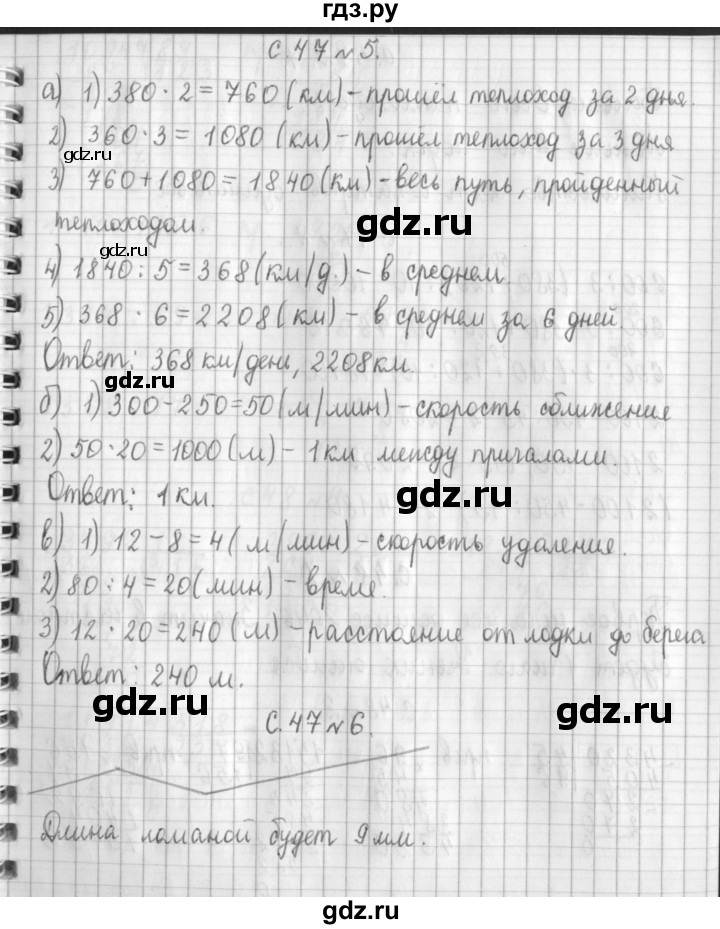 гдз.ру
с. 47 № 5.
а) 1) 380 · 2 = 760 (км) - прошёл теплоход за 2 дня.
2) 360 · 3 = 1080 (км) - прошёл теплоход за 3 дня
gdz.ru
3) 760 + 1080 = 1840 (км) - весь путь, пройденный
теплоходом.
gdz.ru
gdz.ru
4) 1840 : 5 = 368 (км/д.) - в среднем.
5) 368 · 6 = 2208 (км) - в среднем за 6 дней.
Ответ: 368 км/день, 2208 км.
gdz.ru
б) 1) 300 - 250 = 50 (м/мин) - скорость сближения
2) 50 · 20 = 1000 (м) - 1 км между причалами.
Ответ: 1 км.
gdz.ru
в) 1) 12 - 8 = 4 (м/мин) - скорость удаления.
2) 80 : 4 = 20 (мин) - време.
3) 12 · 20 = 240 (м) - расстояние от лодки до берега
Ответ: 240 м.
gdz.ru
gdz.ru
с. 47 № 6.
Длина ломаной будет 9 мм.
gdz.ru
gdz.ru